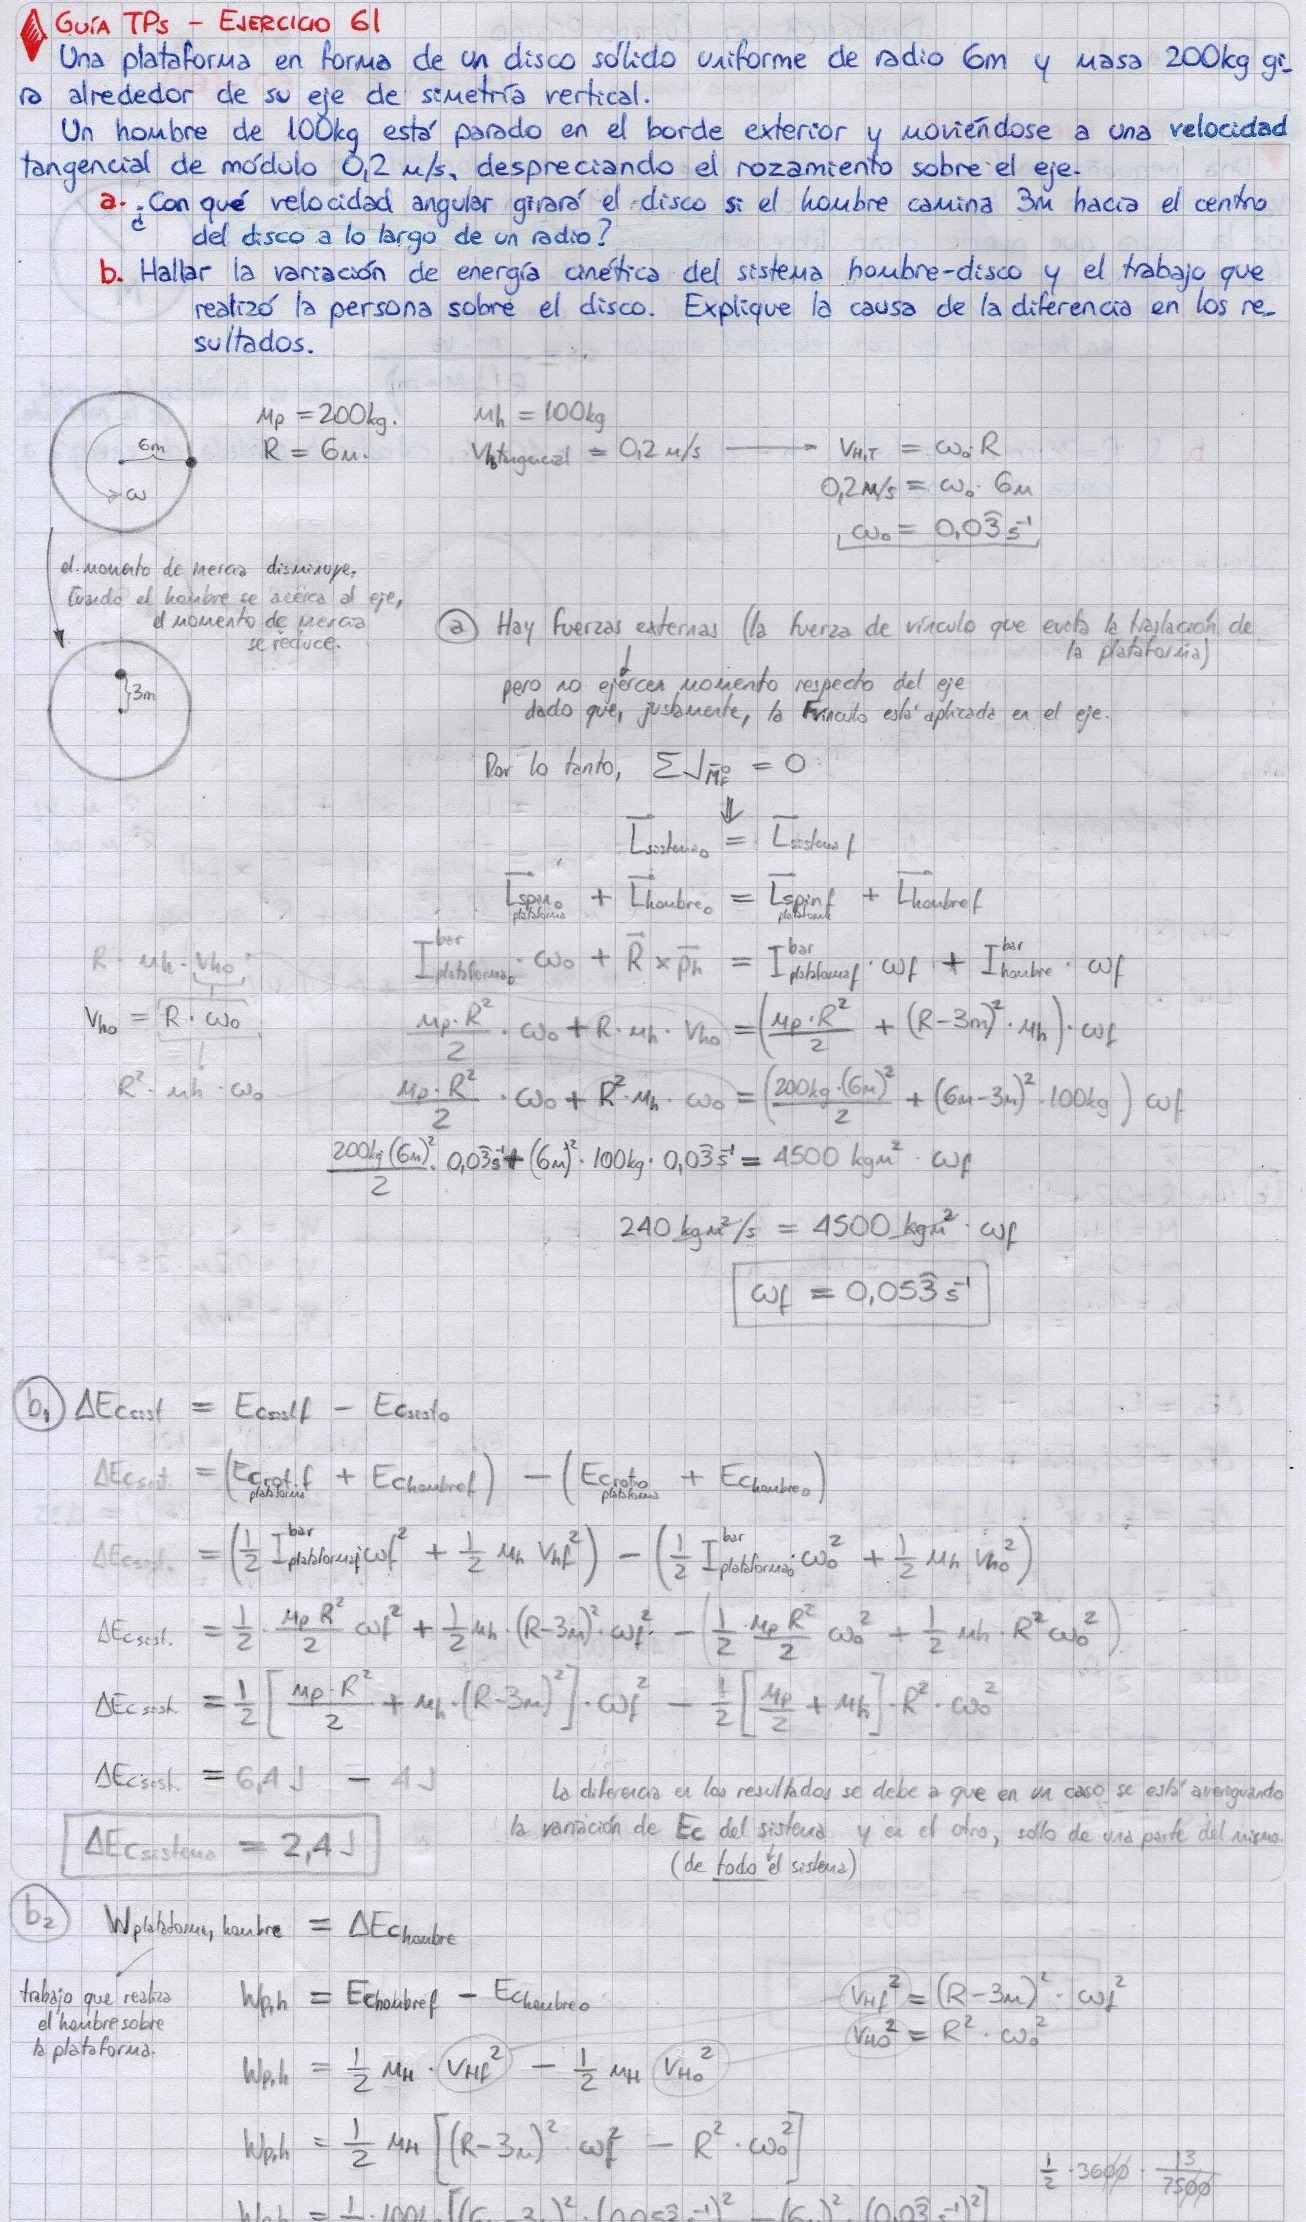 GUÍA TPs - EJERCICIO 61
Una plataforma en forma de un disco sólido uniforme de radio 6m y masa 200kg gi-
ra alrededor de su eje de simetría vertical.
Un hombre de 100kg está parado en el borde exterior y moviéndose a una velocidad
tangencial de módulo 0,2 m/s, despreciando el rozamiento sobre el eje.
a. ¿Con qué velocidad angular girará el disco si el hombre camina 3m hacia el centro
del disco a lo largo de un radio?
b. Hallar la variación de energía cinética del sistema hombre-disco y el trabajo que
realizó la persona sobre el disco. Explique la causa de la diferencia en los re-
sultados.
6m
ω
mp = 200kg.
R = 6m.
mh = 100kg
Vh tangencial = 0,2 m/s → VH,T = ω₀·R
0,2m/s = ω₀·6m
ω₀ = 0,03̂ s⁻¹
el momento de inercia disminuye.
Cuando el hombre se acerca al eje,
el momento de inercia
se reduce.
3m
a) Hay fuerzas externas (la fuerza de vínculo que evita la traslación de
la plataforma)
pero no ejercen momento respecto del eje
dado que, justamente, la Fvínculo está aplicada en el eje.
Por lo tanto, Σ J M̄F° = 0
⇓
L⃗sistema₀ = L⃗sistema f
L⃗spin₀ plataforma + L⃗hombre₀ = L⃗spin f plataforma + L⃗hombre f
I bar plataforma₀ · ω₀ + R⃗ × p⃗h = I bar plataforma f · ωf + I bar hombre · ωf
R · mh · Vh₀
Vh₀ = R · ω₀
mp·R²/2 · ω₀ + R · mh · Vh₀ = (mp·R²/2 + (R-3m)² · mh) · ωf
R² · mh · ω₀
mp·R²/2 · ω₀ + R²·mh · ω₀ = (200kg·(6m)²/2 + (6m-3m)²·100kg) ωf
200kg(6m)²/2 · 0,03̂ s⁻¹ + (6m)²·100kg·0,03̂ s⁻¹ = 4500 kgm² · ωf
240 kgm²/s = 4500 kgm² · ωf
ωf = 0,053̂ s⁻¹
b₁) ΔEcsist = Ecsist f - Ecsist₀
ΔEcsist. = (Ecrot. f plataforma + Echombre f) - (Ecrot₀ plataforma + Echombre₀)
ΔEcsist. = (1/2 I bar plataforma f · ωf² + 1/2 mh Vhf²) - (1/2 I bar plataforma₀ · ω₀² + 1/2 mh Vh₀²)
ΔEcsist. = 1/2 · mpR²/2 ωf² + 1/2 mh · (R-3m)² · ωf² - (1/2 · mpR²/2 ω₀² + 1/2 mh · R² ω₀²)
ΔEcsist = 1/2 [mp·R²/2 + mh·(R-3m)²] · ωf² - 1/2 [mp/2 + mh] · R² · ω₀²
ΔEcsist. = 6,4 J - 4 J
ΔEcsistema = 2,4 J
La diferencia en los resultados se debe a que en un caso se está averiguando
la variación de Ec del sistema y en el otro, sólo de una parte del mismo.
(de todo el sistema)
b₂) Wplataforma, hombre = ΔEchombre
trabajo que realiza
el hombre sobre
la plataforma.
Wp,h = Echombre f - Echombre₀
VHf² = (R-3m)² · ωf²
VH₀² = R² · ω₀²
Wp,h = 1/2 mH · VHf² - 1/2 mH VH₀²
Wp,h = 1/2 mH [(R-3m)² · ωf² - R² · ω₀²]
1/2 · 3600 · 13/7500